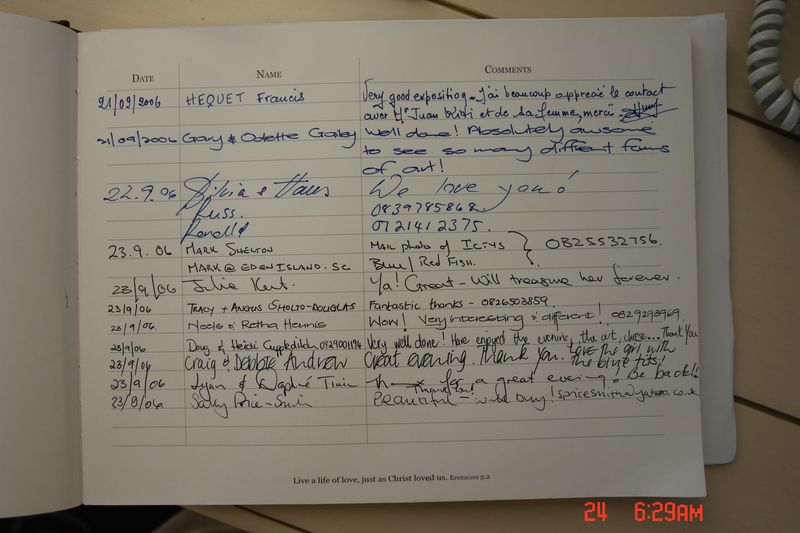 DATE NAME COMMENTS
21/09/2006 HEQUET Francis Very good exposition. J'ai beaucoup apprécié le contact
avec Mr Juan et de sa femme, merci
21/09/2006 Gary & Odette Gailey Well done! Absolutely awsome
to see so many different forms
of art!
22.9.06 Silvia & Hans We love you!
Russ. 0839785868
Ronald 0721412375.
23.9.06 MARK SHELTON MAIL photo of ICTYS } 0825532756.
MARK@EDENISLAND.SC Blue/Red FISH.
23/9/06 Julie Kent. Ya! Great - Will treasure her forever.
23/9/06 TRACY + ANGUS SHOLTO-DOUGLAS Fantastic thanks - 0826503859.
23/9/06. Neels & Retha Heunis Wow! Very interesting & different! 0829293969
23/9/06 Doug & Heidi 0829001194 Very well done! Have enjoyed the evening, the art, cheese... Thank You
23/9/06 Craig & Debbie Andrew Great evening. Thank you. Love the girl with
the blue tits!
23/9/06 & Daphné for a great evening! Be back!!
Thank You!
23/9/06. Sally Price-Smith Beautiful - will buy! spricesmith@yahoo.co.uk
Live a life of love, just as Christ loved us. EPHESIANS 5:2
24 6:29AM